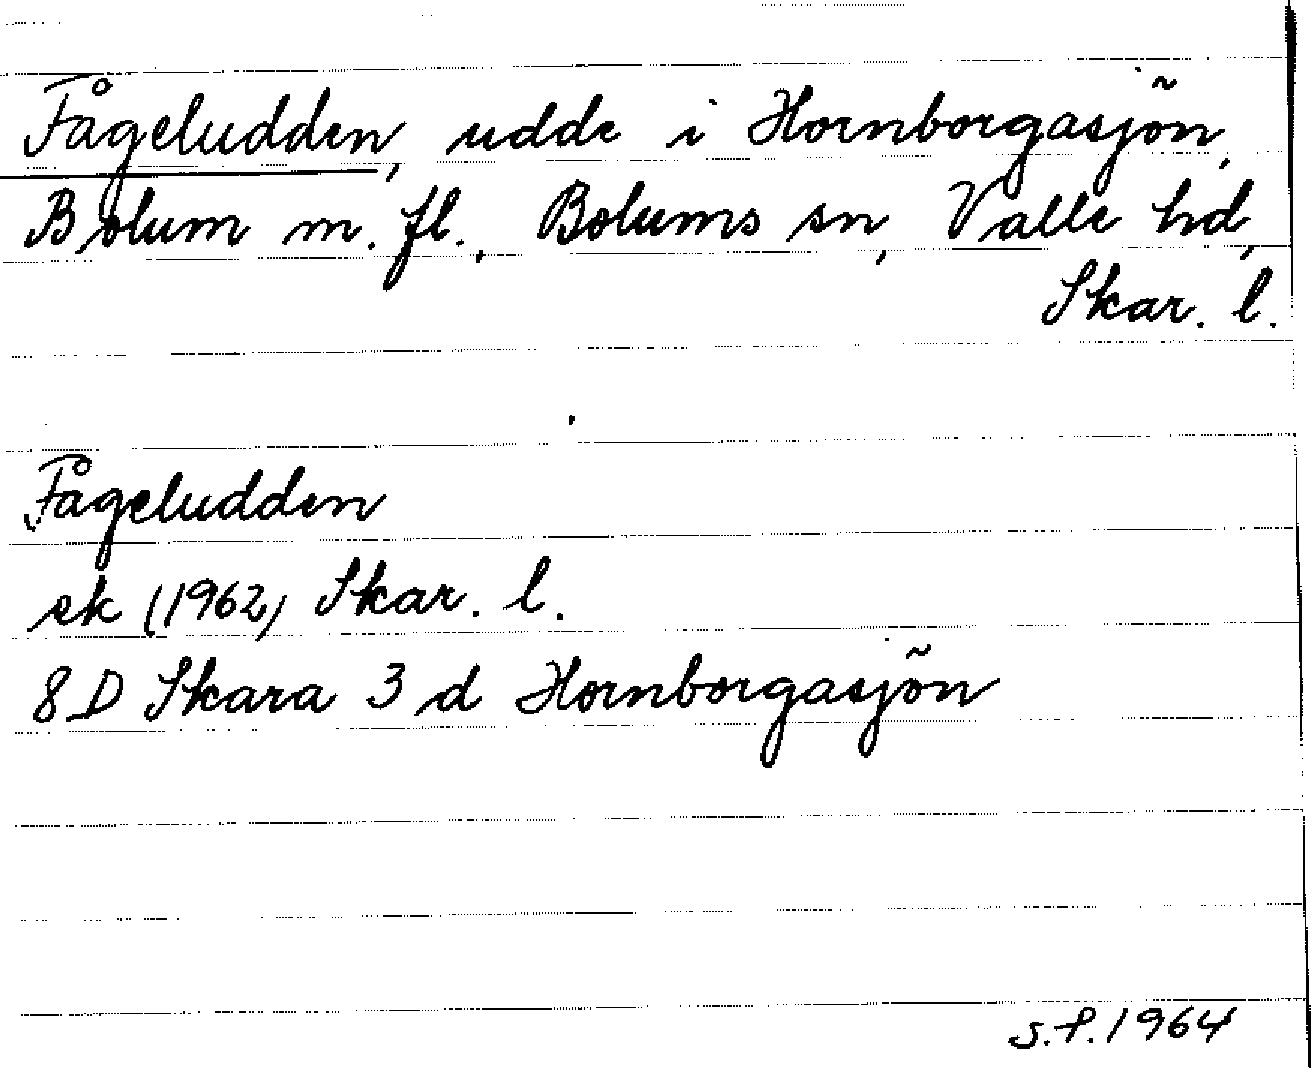 Fågeludden, udde i Hornborgasjön,
Bolum m. fl., Bolums sn, Valle hd,
Skar. l.
Fågeludden
ek (1962) Skar. l.
8 D Skara 3 d Hornborgasjön
S.P. 1964